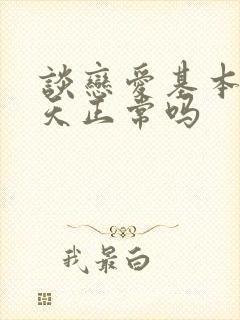 談戀愛基本
天正常吗
我最白